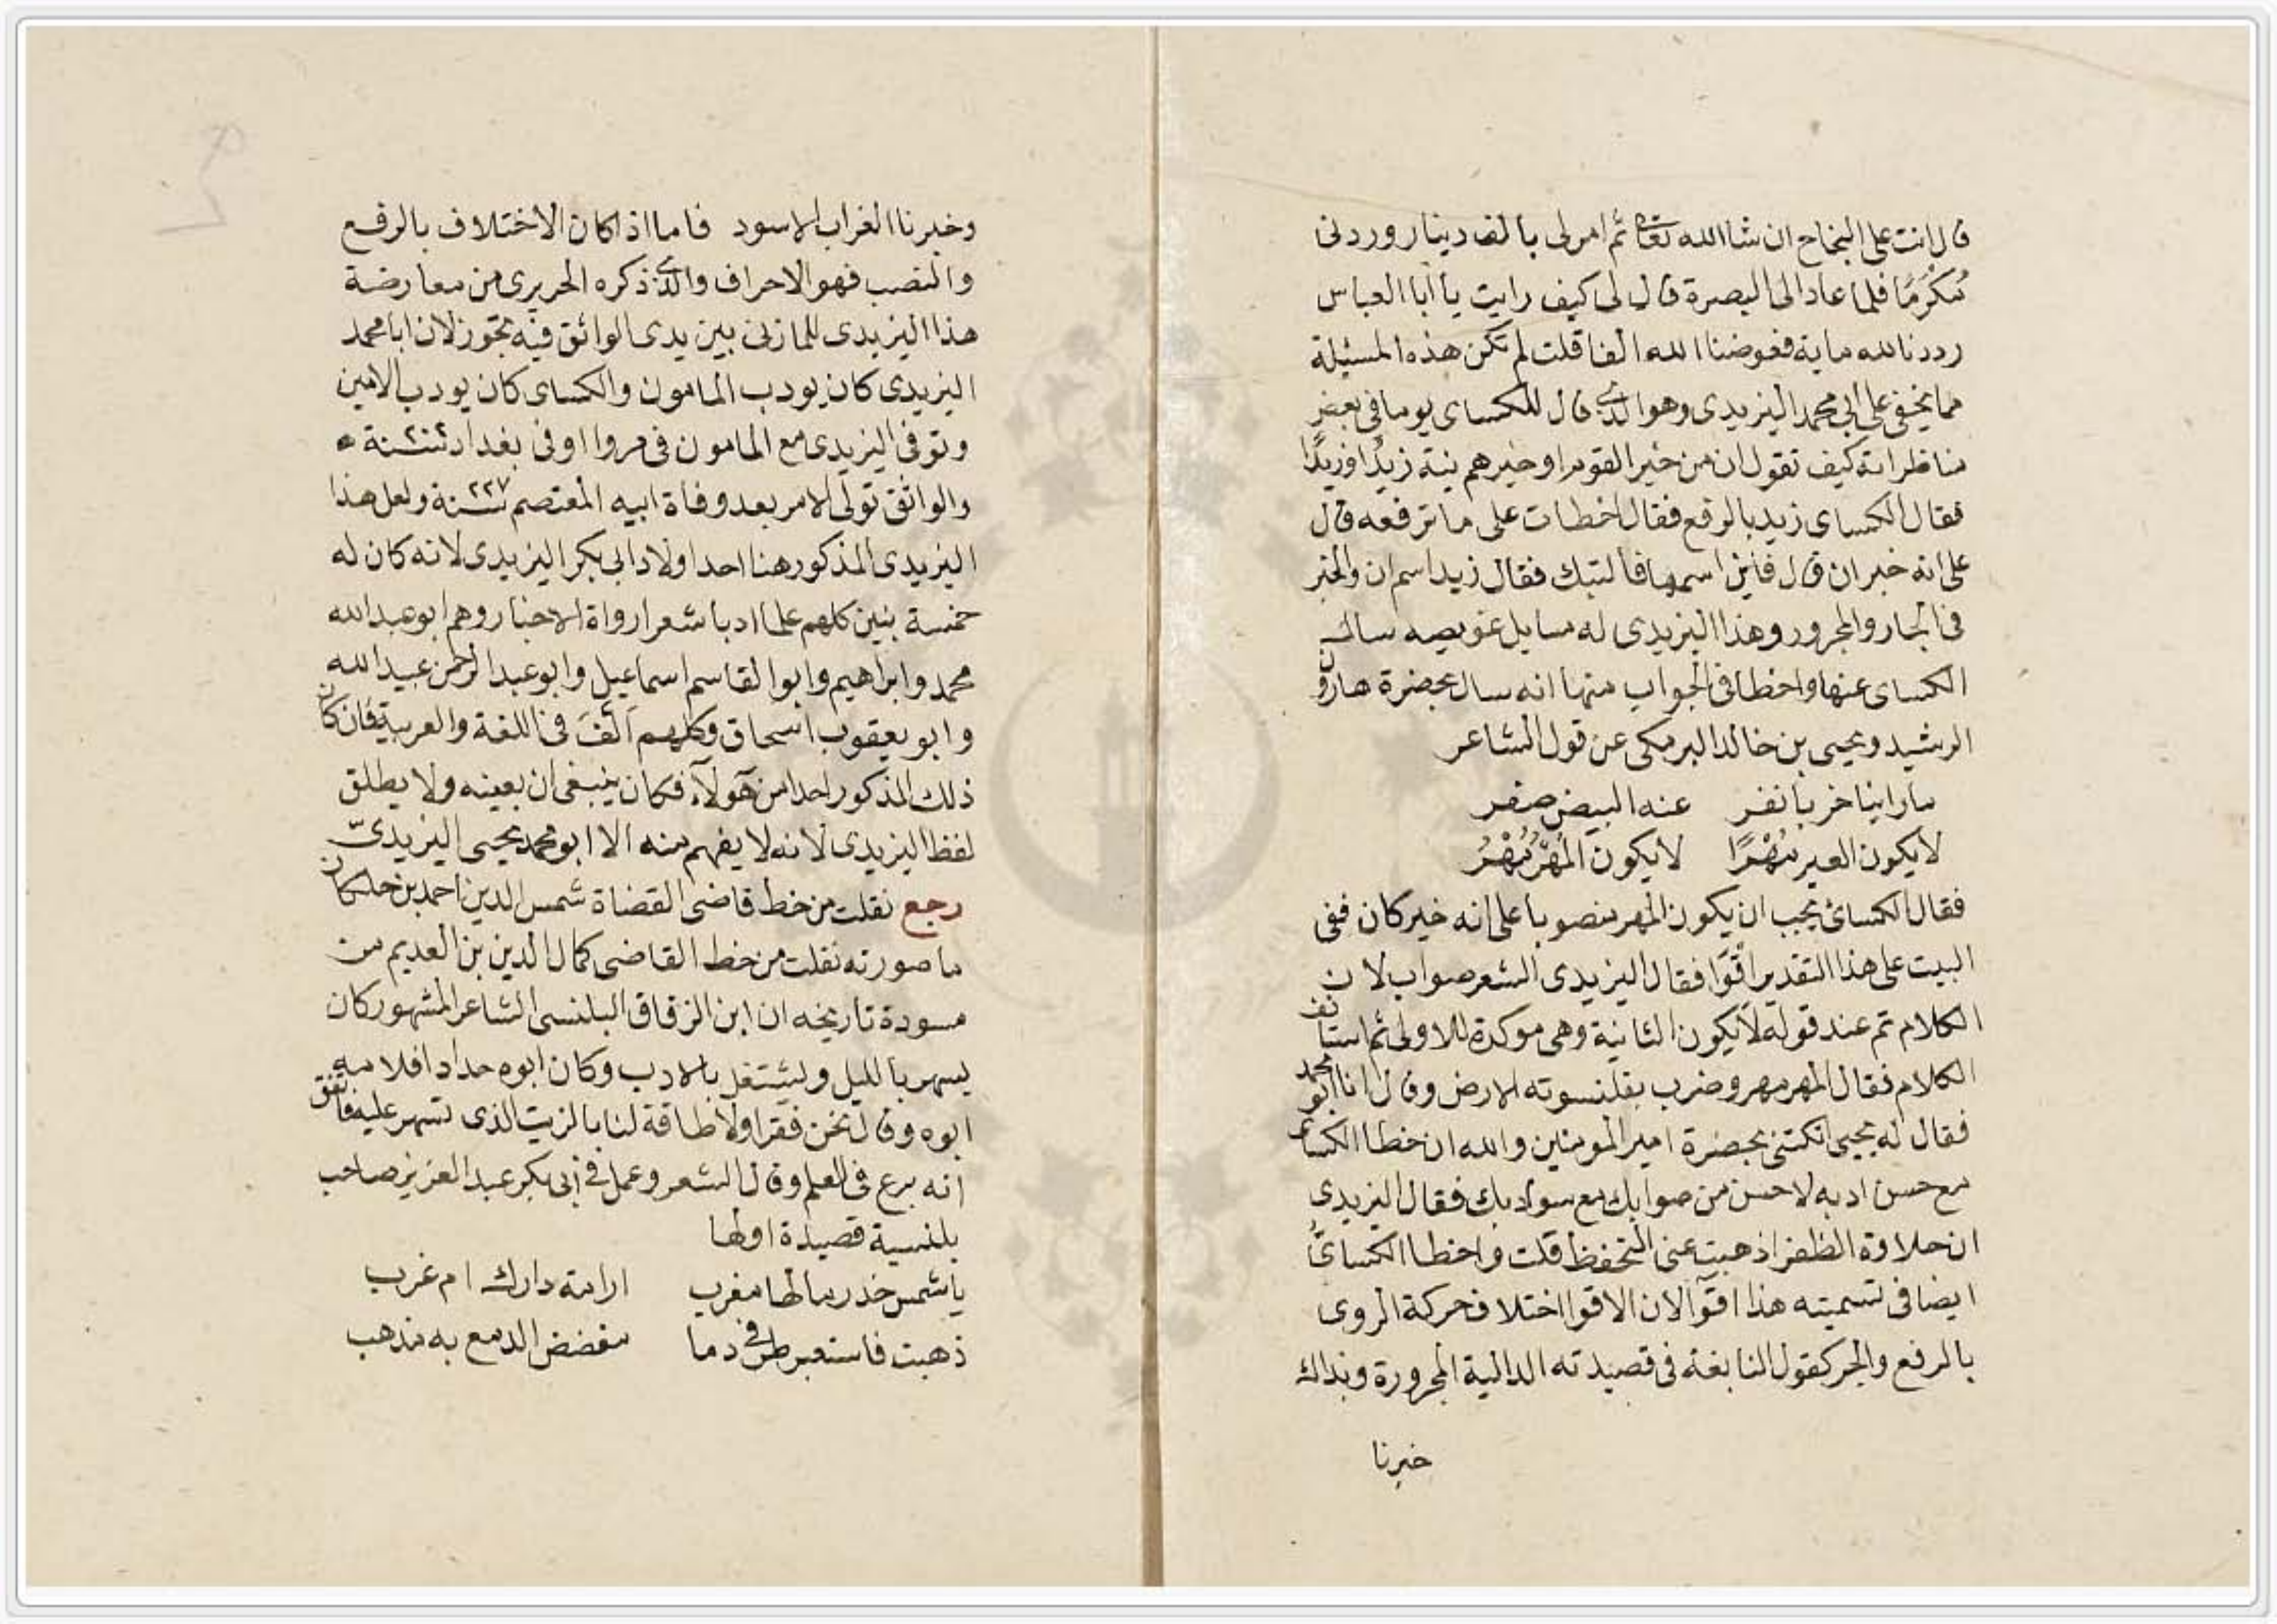 قال انت على النجاح ان شا الله تعالى ثم امر لى بالف دينار وردنى
مُكَرمًا فلما عاد الى البصرة قال لى كيف رايت يا ابا العباس
رددنا لله ماية فعوضنا الله الفا قلت لم تكن هذه المسئيلة
مما يخفى على ابى محمد اليزيدى وهو الذى قال للكساى يوما فى بعض
مناظراته كيف تقول ان من خير القوم او خيرهم نية زيدٌ او زيدًا
فقال الكساى زيد بالرفع فقال اخطات على ما ترفعه قال
على انه خبر ان قال فاين اسمها فالتبك فقال زيد اسم ان والخبر
فى الجار والمجرور وهذا اليزيدى له مسايل عويصه سال
الكساى عنها واخطا فى الجواب منها انه سال بحضرة هارون
الرشيد ويحيى بن خالد البرمكى عن قول الشاعر
ما راينا خربا نفر عنه البيض صقر
لا يكون العير مُهْرًا لا يكون المُهْرُ مُهْرُ
فقال الكساى يجب ان يكون المهر منصوبا على انه خبر كان ففى
البيت على هذا التقدير اقوا فقال اليزيدى الشعر صواب لان
الكلام تم عند قوله لا يكون الثانية وهى موكدة للاولى ثم استانف
الكلام فقال المهر مهر وضرب بقلنسوته الارض وقال انا ابو محمد
فقال له يحيى اتكتنى بحضرة امير المومنين والله ان خطا الكساى
مع حسن ادبه لاحسن من صوابك مع سو ادبك فقال اليزيدى
ان حلاوة الظفر اذهبت عنى التحفظ قلت واخطا الكساىُّ
ايضا فى تسميته هذا اقوآ لان الاقوا اختلاف حركة الروى
بالرفع والجر كقول النابغة فى قصيدته الدالية المجرورة وبذاك
خبرنا
وخبرنا الغراب الاسود فاما اذا كان الاختلاف بالرفع
والنصب فهو الاحراف والذى ذكره الحريرى من معارضة
هذا اليزيدى للمازنى بين يدى الواثق فيه تجوز لان ابا محمد
اليزيدى كان يودب المامون والكساى كان يودب الامين
وتوفى اليزيدى مع المامون فى مرو او فى بغداد سنة
والواثق تولى الامر بعد وفاة ابيه المعتصم سنة ٢٢٧ ولعل هذا
اليزيدى المذكور هنا احد اولاد ابى بكر اليزيدى لانه كان له
خمسة بنين كلهم علما ادبا شعرا رواة الاخبار وهم ابو عبد الله
محمد وابراهيم وابو القاسم اسماعيل وابو عبد الرحمن عبيد الله
وابو يعقوب اسحاق وكلهم اَلَّفَ فى اللغة والعربية فان كان
ذلك المذكور احدا من هولآء فكان ينبغى ان يعينه ولا يطلق
لفظ اليزيدى لانه لا يفهم منه الا ابو محمد يحيى اليزيدىّ
رجع نقلت من خط قاضى القضاة شمس الدين احمد بن خلكان
ما صورته نقلت من خط القاضى كمال الدين بن العديم من
مسودة تاريخه ان ابن الزقاق البلنسى الشاعر المشهور كان
يسهر بالليل ويشتغل بالادب وكان ابوه حدادا فلامه
ابوه وقال نحن فقرا ولا طاقة لنا بالزيت الذى تسهر عليه فاتفق
انه برع فى العلم وقال الشعر وعمل فى ابى بكر عبد العزيز صاحب
بلنسية قصيدة اولها
يا شمس خدر مالها مغرب ارامة دارك ام غرب
ذهبت فاستعبر طرفى دما مفضض الدمع به مذهب